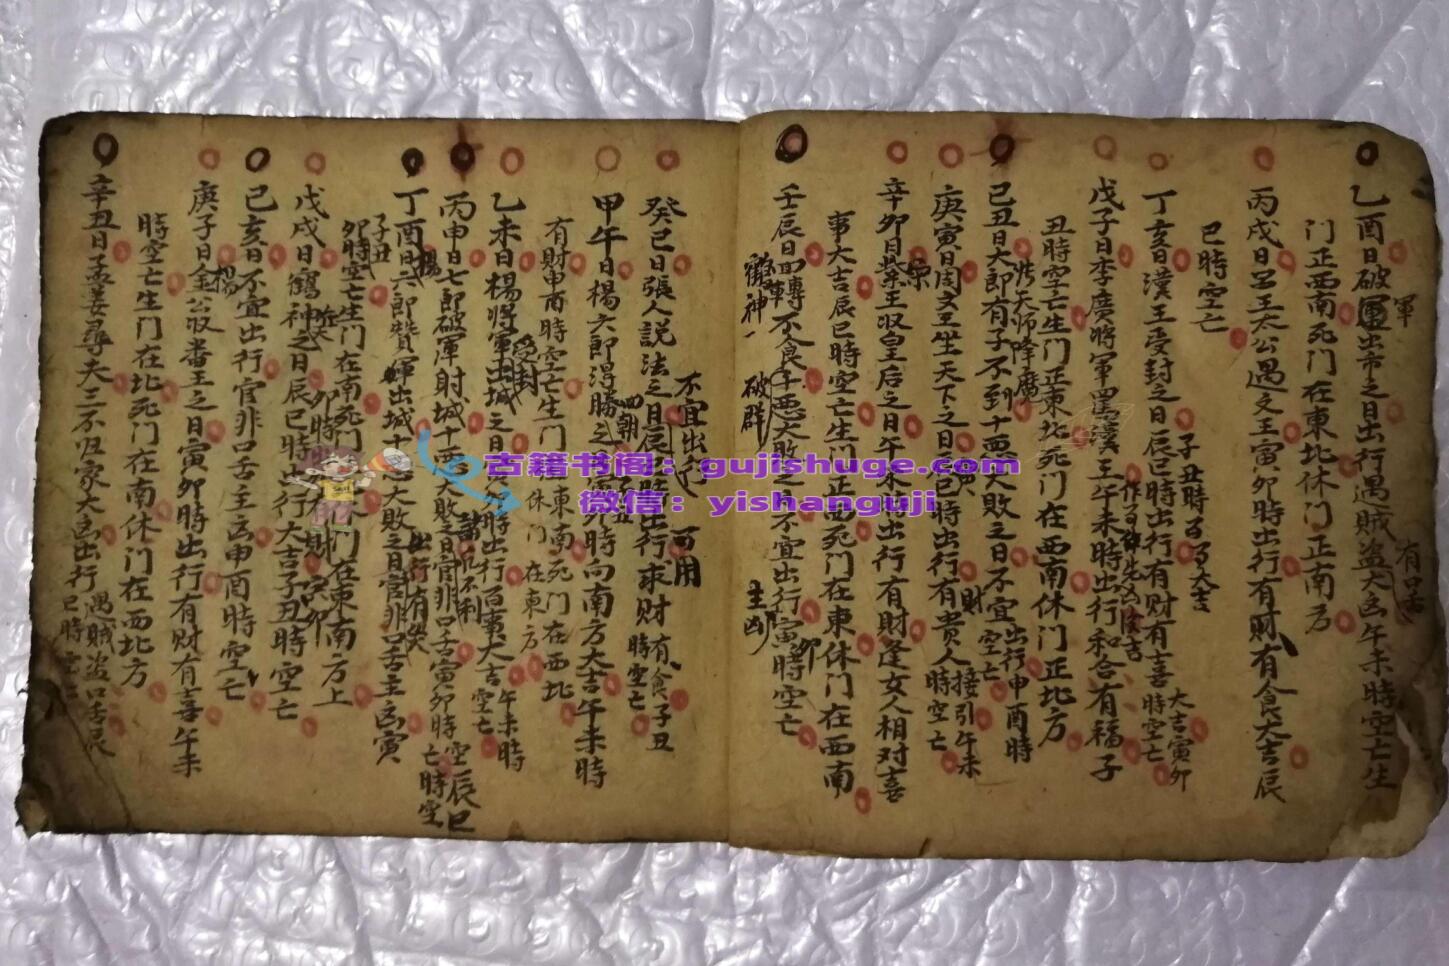 乙酉日破軍出市之日出行遇賊盗大凶午未時空亡生
軍
有口舌
门正西南死门在東北休门正南方
丙戌日呂王太公遇文王寅卯時出行有財有食大吉辰
巳時空亡
子丑時
大吉
丁亥日漢王受封之日辰巳時出行有财有喜大吉寅卯時空亡
戊子日李廣將軍罵漢王午未時出行和合有福子
丑時空亡生门正東北死门在西南休门正北方
張天师降魔
己丑日大郎有子不到十恶大敗之日不宜出行申酉時空亡
庚寅日周文王坐天下之日巳時出行有贵人接引午未時空亡
財
辛卯日梁王収皇后之日午未出行有财逢女人相对喜
事大吉辰巳時空亡生门正西死门在東休门在西南
壬辰日四轉不食子恶大敗之日不宜出行寅時空亡
卯
鶴神
破群
主凶
不宜出行
可用
癸巳日張人説法之日辰時出行求财有食子丑時空亡
甲午日楊六郎得勝之寅卯時向南方大吉午未時
四朝
有財申酉時空亡生门東南死门在西北
休门在東方
乙未日楊將軍出城之日時出行百事大吉午未時空亡
受封
丙申日七郎破軍射城十恶大敗日官非口舌寅卯時空亡
諸不利
丁酉日六郎贊輝出城十恶大敗之日官非口舌主凶寅
楊
出行有失
辰巳時空亡
卯時空亡生门在南死门休门在東南方上
子丑
戊戌日鶴神之日辰巳時出行大吉子丑時空亡
卯時
財
寅卯
己亥日不宜出行官非口舌主凶申酉時空亡
庚子日金公収畨王之日寅卯時出行有财有喜午未
楊
時空亡生门在北死门在南休门在西北方
辛丑日孟姜尋夫三不归家大凶出行遇賊盗口舌辰巳時空亡
古籍书阁：gujishuge.com
微信：yishanguji